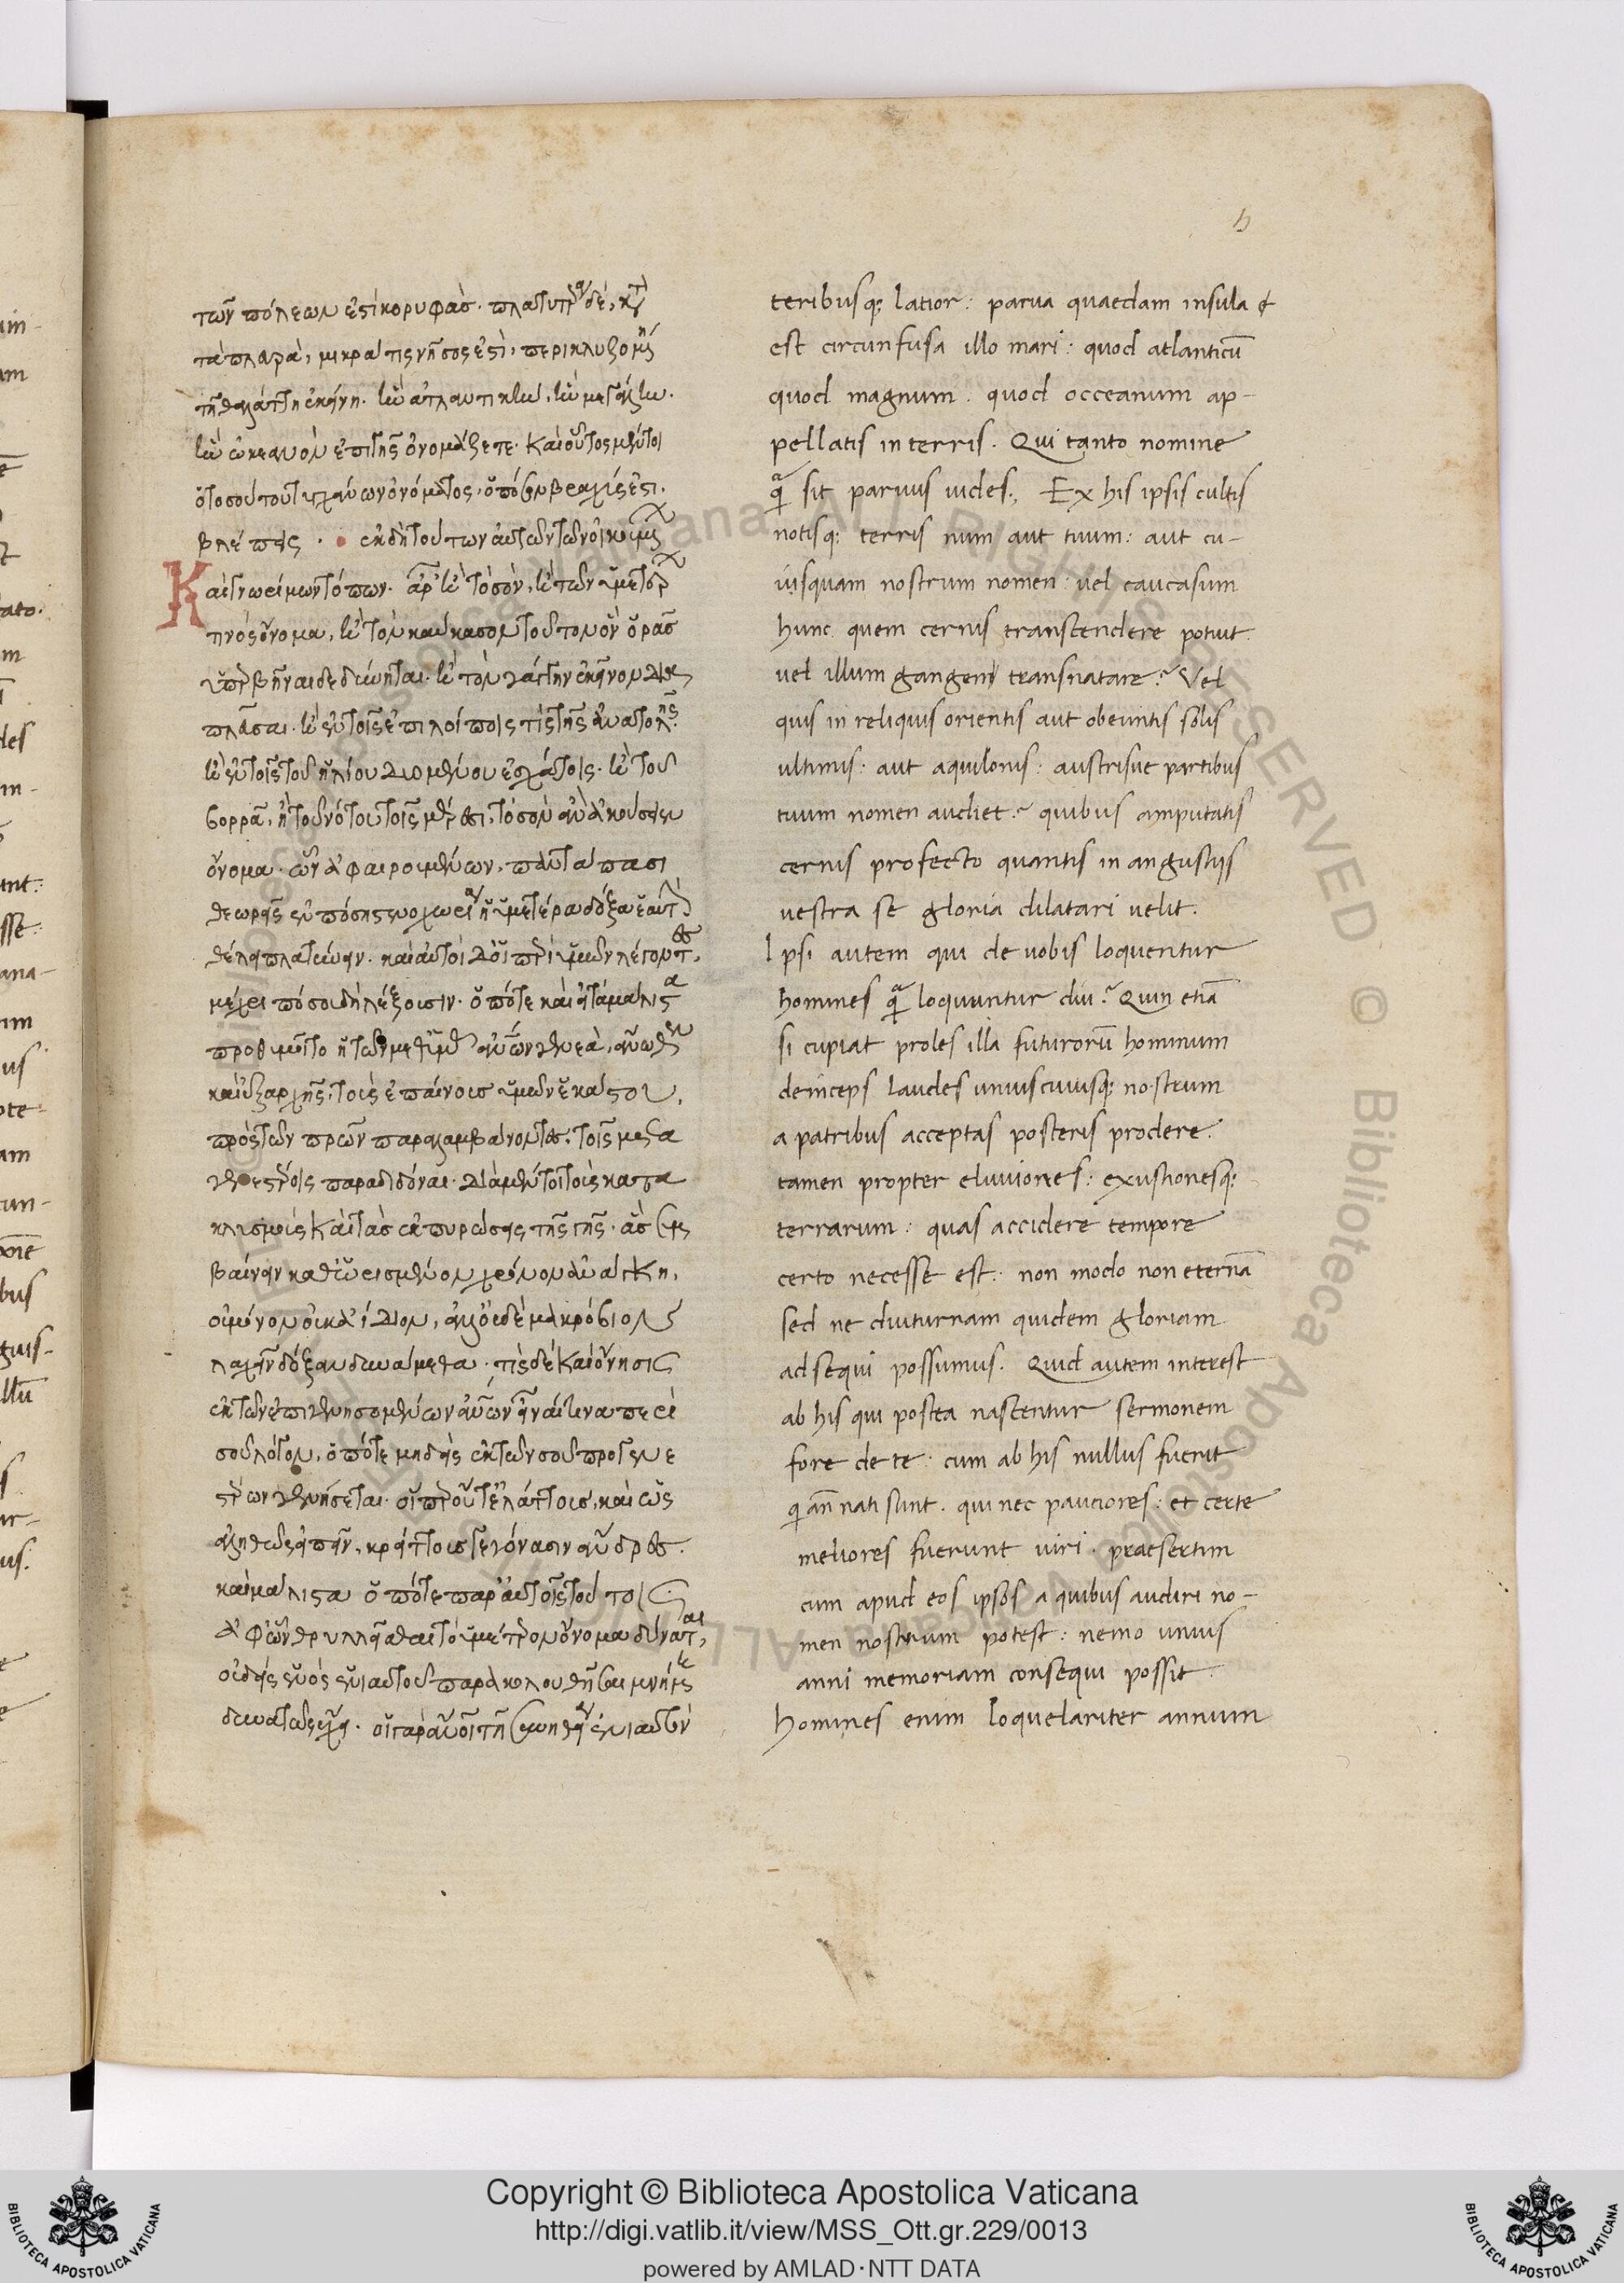 τῶν πόλεων ἐστὶ κορυφάς. πλατυτέρα δέ, κατὰ
τὰ πλαγρά, μικρά τις νῆσος ἐστὶ, περικλυζομένη
τῇ θαλάττῃ ἐκείνῃ. ἣν ἀτλαντικήν, ἣν μεγάλην.
ἣν ὠκεανὸν ἐπὶ γῆς ὀνομάζετε. καὶ οὗτος μέντοι
ὁ τοσούτου τυγχάνων ὀνόματος, ὁπόσον βραχύς ἐστι.
βλέπεις . ἐκ δὴ τούτων αὐτῶν τῶν οἰκουμένων
Καὶ γνωρίμων τόπων. ἆρ' ἢ τὸ σὸν, ἢ τῶν ἡμετέρων
τινὸς ὄνομα, ἢ τὸν καύκασον τοῦτον ὃν ὁρᾶς
ὑπερβῆναι δεδύνηται. ἢ τὸν γάγγην ἐκεῖνον δια
πλεῦσαι. ἢ ἐν τοῖς ἐπιλοίποις τίς τῆς ἀνατολῆς
ἢ ἐν τοῖς τοῦ ἡλίου δυομένου ἐσχάτοις. ἢ τοῦ
βορρᾶ, ἢ τοῦ νότου τοῖς μέρεσι, τὸ σὸν ἂν ἀκούσειεν
ὄνομα. ὧν ἀφαιρουμένων, παντάπασι
θεωρεῖς ἐν πόσῃ στενοχωρίᾳ ἡ ὑμετέρα δόξα ἑαυτὴν
θέλει πλατύνειν. καὶ αὐτοὶ δὲ οἱ περὶ ὑμῶν λέγοντες,
μέχρι πόσου δὴ λέξουσιν. ὁπότε καὶ εἰ τὰ μάλιστα
προθυμοῖτο ἡ τῶν μεθ' ἡμᾶς ἀνθρώπων γενεὰ, ἄνωθεν
καὶ ἐξαρχῆς, τοὺς ἐπαίνους ὑμῶν ἑκάστου,
πρὸς τῶν πατέρων παραλαμβάνοντες, τοῖς μετα
γενεστέροις παραδιδόναι. διὰ μέντοι τοὺς κατα
κλυσμοὺς καὶ τὰς ἐκπυρώσεις τῆς γῆς. ἃς συμ
βαίνειν καθ' ὡρισμένον χρόνον ἀνάγκη,
οὐ μόνον οὐκ ἀΐδιον, ἀλλ' οὐδὲ μακρόβιον
λαχεῖν δόξαν δυνάμεθα. τίς δὲ καὶ ὄνησις
ἐκ τῶν ἐπιγενησομένων ἀνθρώπων εἶναί τινα περὶ
σοῦ λόγον, ὁπότε μηδεὶς ἐκ τῶν σοῦ προγενε
στέρων γενήσεται. οἵπερ οὔτε ἐλάττους, καὶ ὡς
ἀληθῶς εἰπεῖν, κρείττους γεγόνασιν ἄνδρες.
καὶ μάλιστα ὁπότε παρ' αὐτοῖς τούτοις
ἀφ' ὧν θρυλλεῖσθαι τὸ ἡμέτερον ὄνομα δύναται,
οὐδεὶς ἑνὸς ἐνιαυτοῦ παρακολουθῆσαι μνήμῃ
δυνατῶς ἔχει. οἱ γὰρ ἄνθρωποι τῇ συνηθείᾳ ἐνιαυτὸν
teribusq; latior: parua quaedam insula ẽ
est circunfusa illo mari: quod atlanticũ
quod magnum. quod occeanum ap-
pellatis in terris. Qui tanto nomine
q̃ sit paruus uides., Ex his ipsis cultis
notisq; terris num aut tuum: aut cu-
iusquam nostrum nomen: uel caucasum
hunc quem cernis transcendere potuit.
uel illum gangem transnatare? Vel
quis in reliquis orientis aut obeuntis solis
ultimis: aut aquilonis: austrisue partibus
tuum nomen audiet? quibus amputatis
cernis profecto quantis in angustijs
uestra se gloria dilatari uelit.
Ipsi autem qui de uobis loquentur
homines q̃ loquuntur diu? Quin etiã
si cupiat proles illa futurorũ hominum
deinceps laudes uniuscuiusq; nostrum
a patribus acceptas posteris prodere.
tamen propter eluuiones: exustionesq;
terrarum: quas accidere tempore
certo necesse est: non modo non eternã
sed ne diuturnam quidem gloriam
adsequi possumus. Quid autem interest
ab his qui postea nascentur sermonem
fore de te: cum ab his nullus fuerit
qi añ nati sunt. qui nec pauciores: et certe
meliores fuerunt uiri. praesertim
cum apud eos ipsos a quibus audiri no-
men nostrum potest: nemo unius
anni memoriam consequi possit.
Homines enim loquelariter annum
Copyright © Biblioteca Apostolica Vaticana
http://digi.vatlib.it/view/MSS_Ott.gr.229/0013
powered by AMLAD·NTT DATA